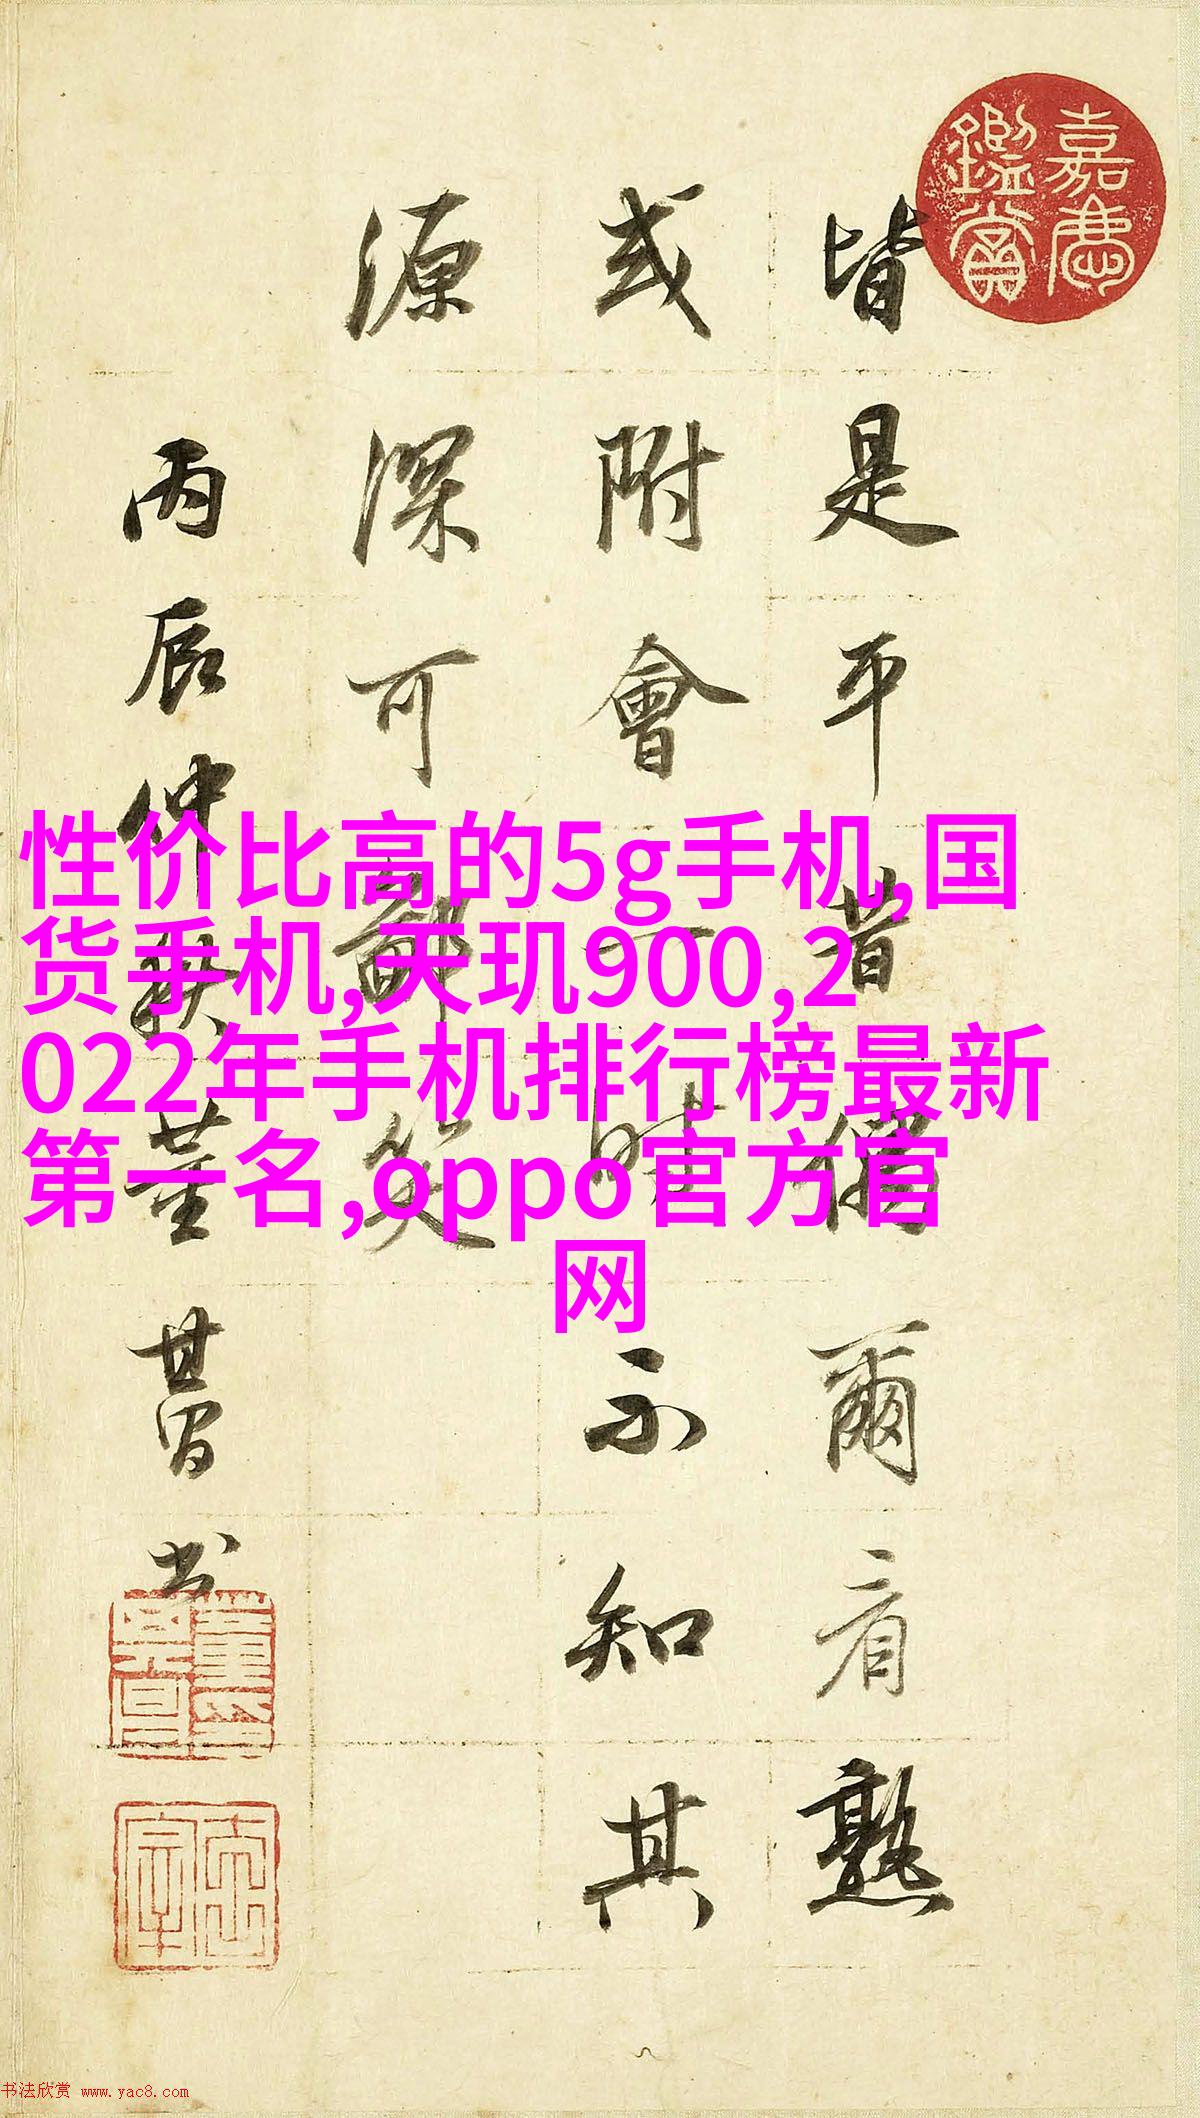 嘉慶
鑑賞
皆是平昔偶爾看熟
或附會一時不知其
源深可鄙笑
丙辰仲秋董其昌书
性价比高的5g手机,国
货手机,天玑900,2
022年手机排行榜最新
第一名,oppo官方官
网
书法欣赏 www.yac8.com